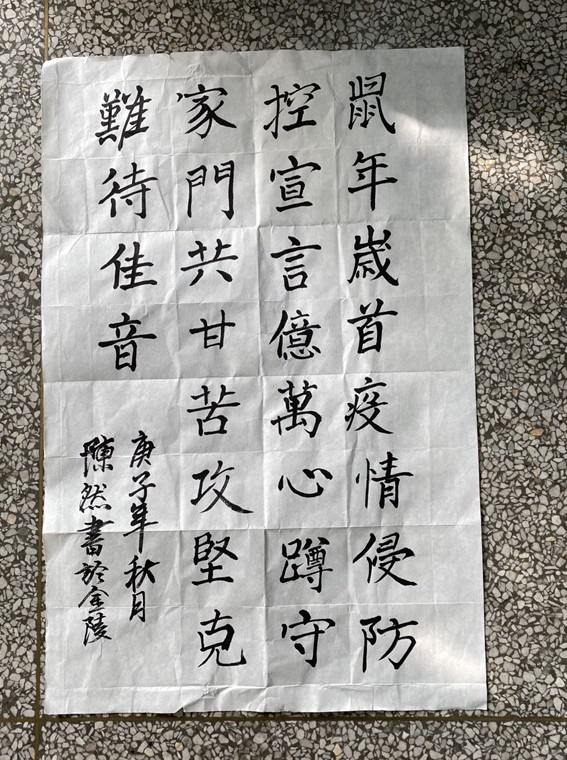 鼠年歲首疫情侵防
控宣言億萬心蹲守
家門共甘苦攻堅克
難待佳音
庚子年秋月
陳然書於金陵